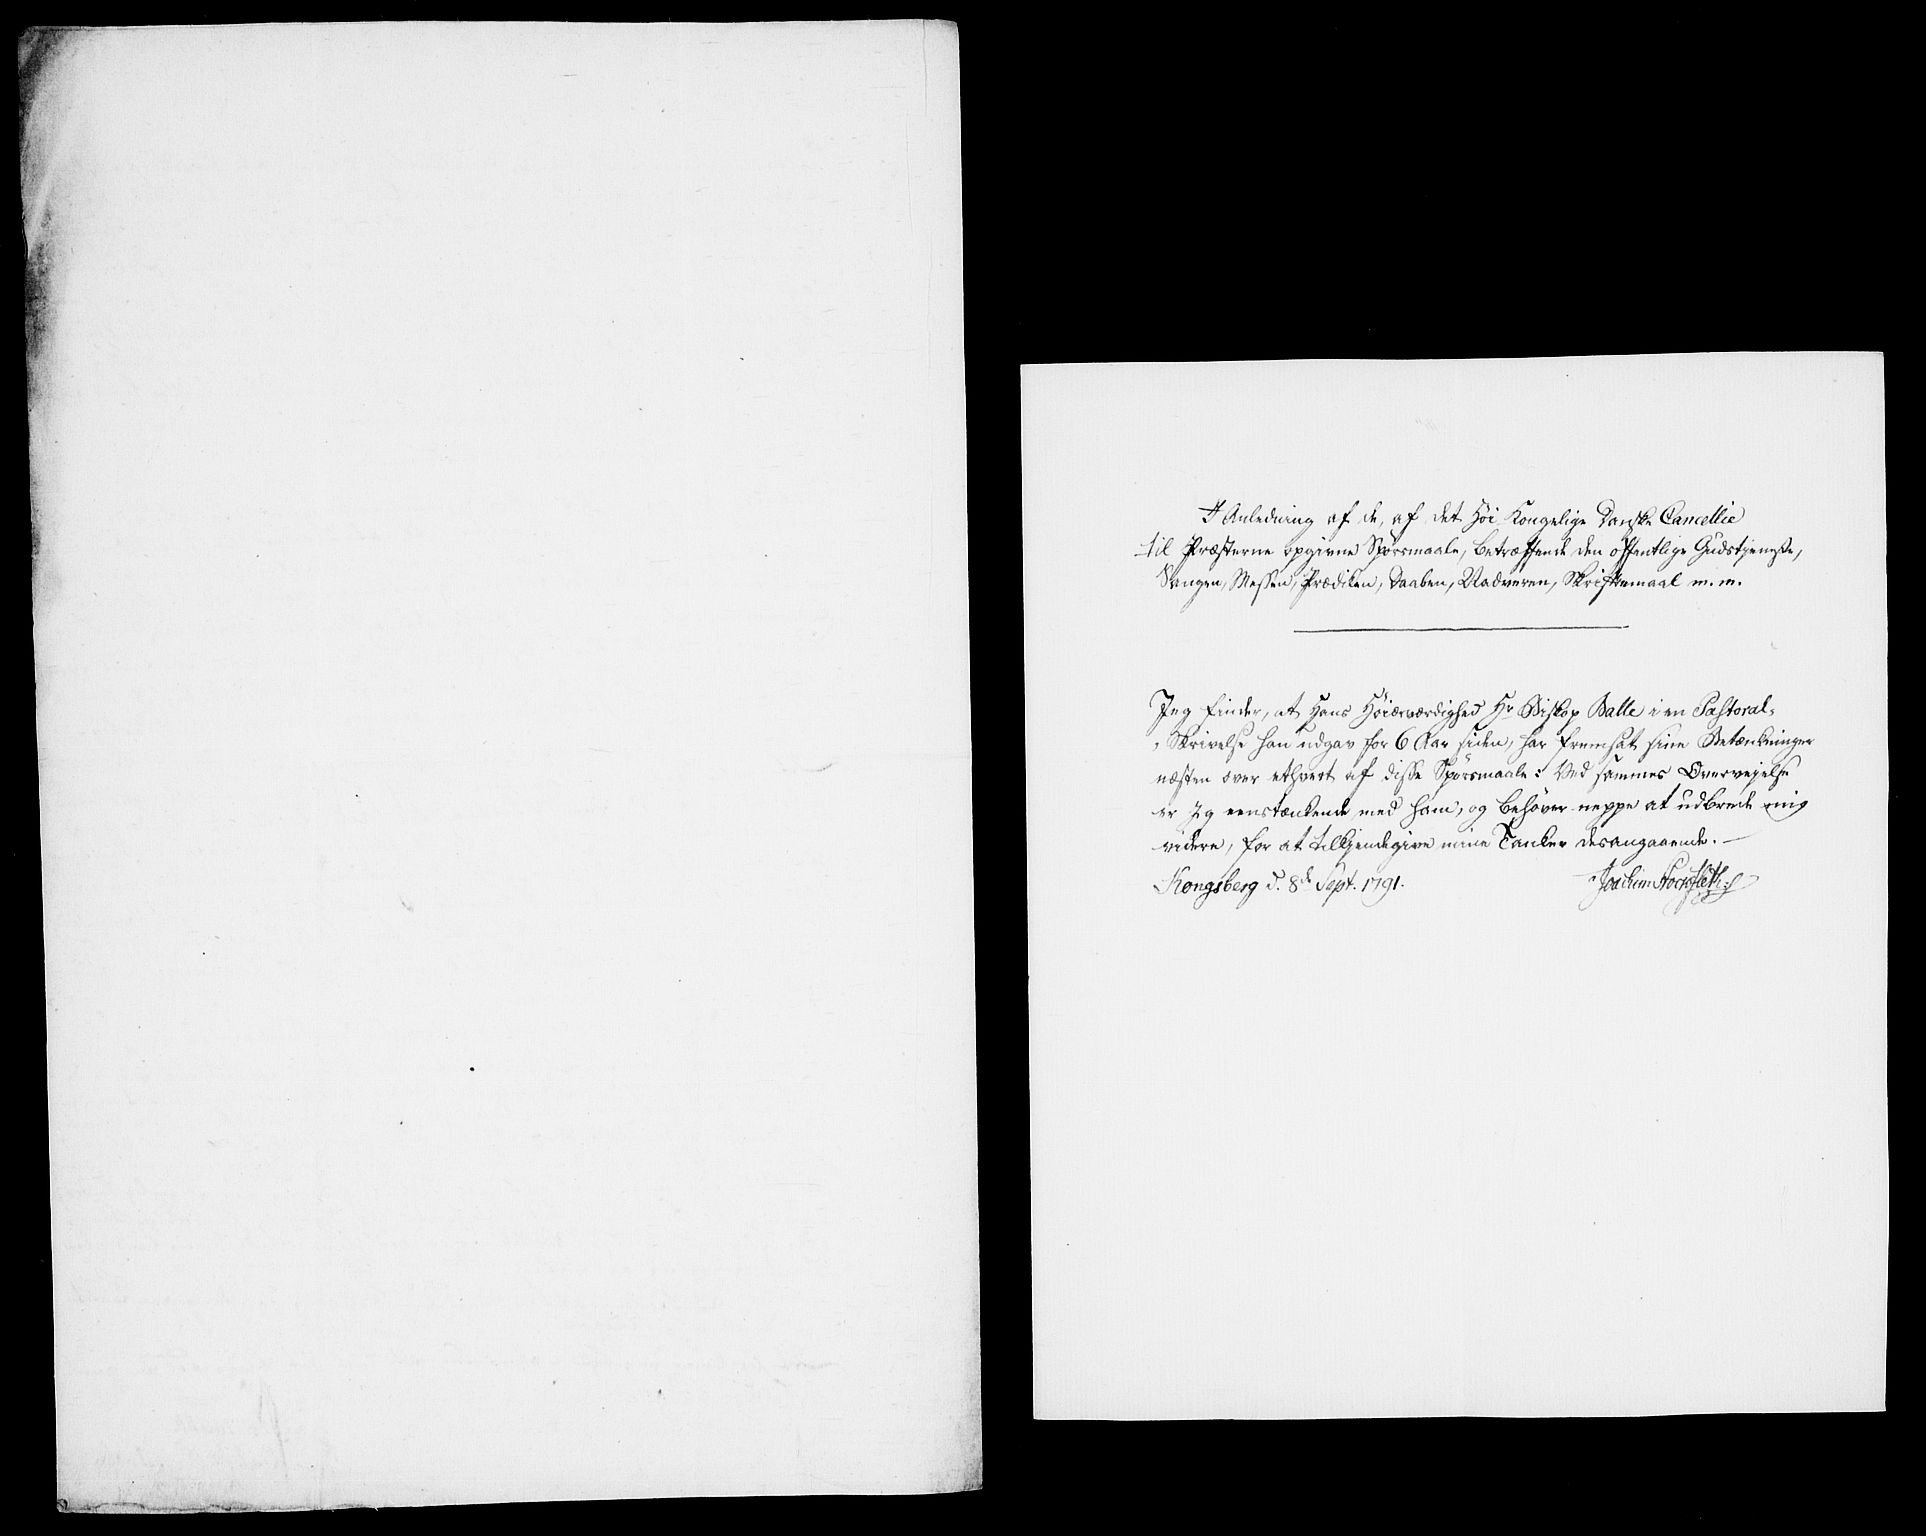 I Anledning af de, af det Høi Kongelige Danske Cancellie
til Præsterne opgivne Spørsmaale, betræffende den offentlige Gudstjeneste,
Sangen, Messen, Prædiken, Daaben, Nadveren, Skriftemaal m. m.
Jeg finder, at Hans Høiærværdighed Hr Biskop Balle i en Pastoral-
-Skrivelse han udgav for 6 Aar siden, har fremsat sine Betænkninger
næsten over ethvert af disse Spørsmaale: Ved sammes Overvejelse
er jeg eenstænkende med ham, og behøver neppe at udbrede mig
videre, for at tilkjendegive mine Tanker desangaaende. —
Kongsberg d. 8de Sept. 1791.
Joachim Stockfleth